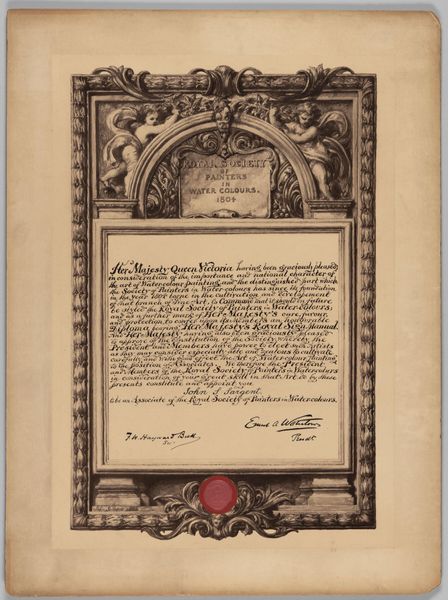 ROYAL SOCIETY
OF
PAINTERS
IN
WATER COLOURS.
1804
Her Majesty Queen Victoria having been graciously pleased
in consideration of the importance and national character of
the art of Water-colour Painting, and the distinguished part which
the Society of Painters in Water-colours has since its foundation
in the year 1804 borne in the cultivation and developement
of that branch of Fine Art, to Command that it should in future
be styled the Royal Society of Painters in Water-colours;
and as a further mark of Her Majesty's care, favour,
and protection to confer upon its members an honourable
Diploma bearing Her Majesty's Royal Sign Manual
And Her Majesty having also been graciously pleased
to approve of the Constitution of the Society whereby the
President and Members have power to elect such Artists
as they may consider especially able and zealous to cultivate
carefully and with good effect the Art of Water-colour Painting
to the position of Associates. We therefore the President
and Members of the Royal Society of Painters in Water-colours
in consideration of your great skill in that Art do by these
presents constitute and appoint you
John S. Sargent.
to be an Associate of the Royal Society of Painters in Water-colours.
Ernest A. Waterlow
Presdt.